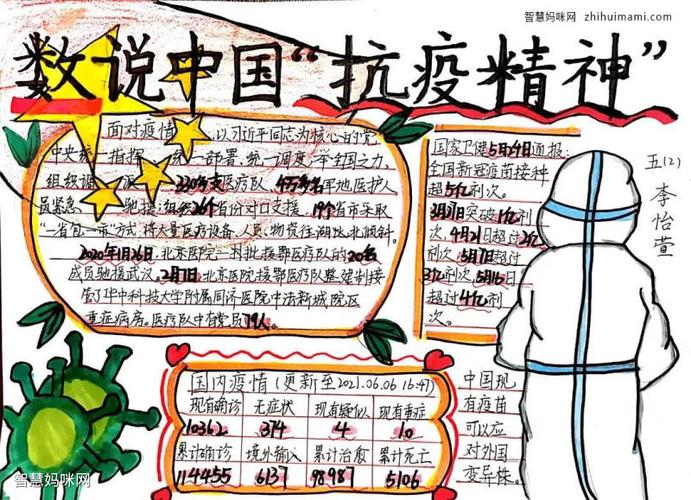 智慧妈咪网 zhihuimami.com
数说中国“抗疫精神”
面对疫情 以习近平同志为核心的党
中央统一指挥 统一部署,统一调度,举全国之力,
组织调 330多支医疗队 4万多名军地医护人
员紧急 驰援;组织26个省份对口支援,19个省市采取
“一省包一市”方式,将大量医疗设备、人员、物资往湖北倾斜。
2020年1月26日,北京医院 批援鄂医疗队的20名
成员驰援武汉,2月7日,北京医院援鄂医疗队整建制接
管了华中科技大学附属同济医院中法新城院区
重症病房。医疗队中有党员79人。
国家卫健5月24日通报:
全国新冠疫苗接种
超5亿剂次。
3月27日突破1亿剂
次,4月21日超过2亿
剂次 5月7日超过
3亿剂次 5月16日
超过4亿剂
次。
五(2)
李怡萱
国内疫情(更新至2021.06.06 16:47)
现有确诊 无症状 现有疑似 现有重症
10362 374 4 10
累计确诊 境外输入 累计治愈 累计死亡
114455 6137 98987 5106
中国现
有疫苗
可以应
对外国
变异株。
智慧妈咪网
www.zhihuimami.com